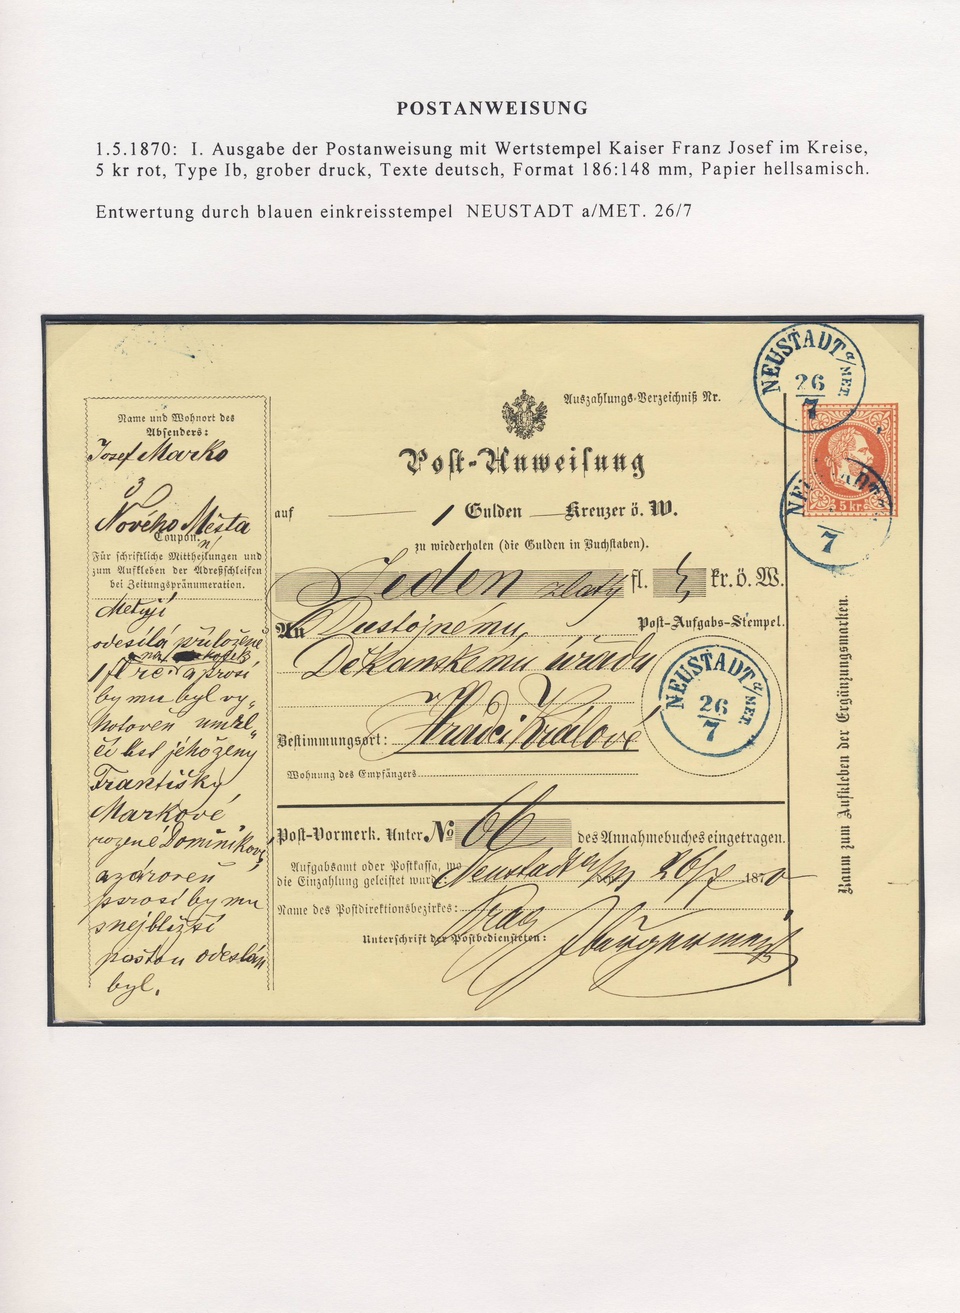 POSTANWEISUNG
1.5.1870: I. Ausgabe der Postanweisung mit Wertstempel Kaiser Franz Josef im Kreise,
5 kr rot, Type Ib, grober druck, Texte deutsch, Format 186:148 mm, Papier hellsamisch.
Entwertung durch blauen einkreisstempel NEUSTADT a/MET. 26/7
NEUSTADT a/MET.
26
7
5 kr.
7
Name und Wohnort des
Absenders:
Jozef Marko
z
Nového Mesta
Coupon.
n/
Für schriftliche Mittheilungen und
zum Aufkleben der Adreßschleifen
bei Zeitungspränumeration.
odesílá přiložené
1 f a prosí
by mu byl vy„
hotoven úmrt„
čí list jeho ženy
Františky
Markové
rozené Dominikové
a zároveň
prosí by mu
nejbližší
poštou odeslán
byl.
Auszahlungs-Verzeichniß Nr.
Post-Anweisung
auf 1 Gulden Kreuzer ö. W.
zu wiederholen (die Gulden in Buchstaben).
Jeden zlatý fl. kr. ö. W.
An Dustojnému
Post-Aufgabs-Stempel.
Děkanskému úřadu
v
Bestimmungsort: Hradci Králové
Wohnung des Empfängers
NEUSTADT a/MET.
26
7
Post-Vormerk. Unter No 66 des Annahmebuches eingetragen.
Aufgabsamt oder Postkassa, wo
die Einzahlung geleistet wurde Neustadt a/M 26/7 1870
Name des Postdirektionsbezirkes: Prag
Unterschrift der Postbediensteten:
Raum zum Aufkleben der Ergänzungsmarken.